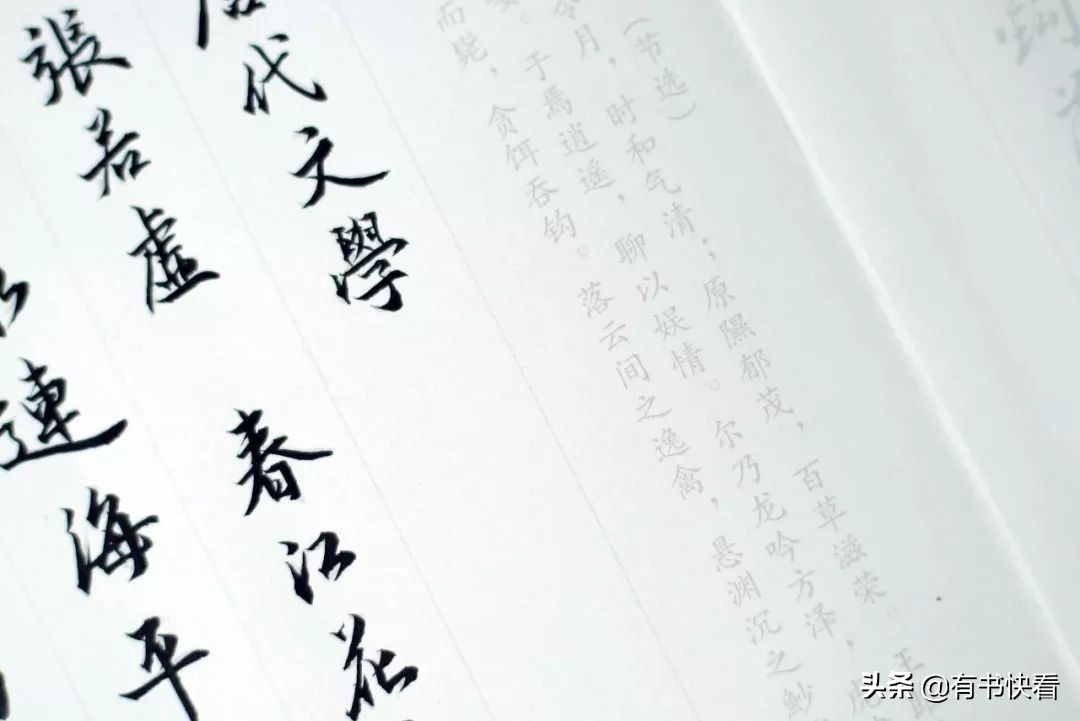 （节选）
令月，时和气清；原隰郁茂，百草滋荣。王
于焉逍遥，聊以娱情。尔乃龙吟方泽，虎
而毙，贪饵吞钩。落云间之逸禽，悬渊沉之魦
代文學
張若虛 春江花
連海平
头条 @有书快看